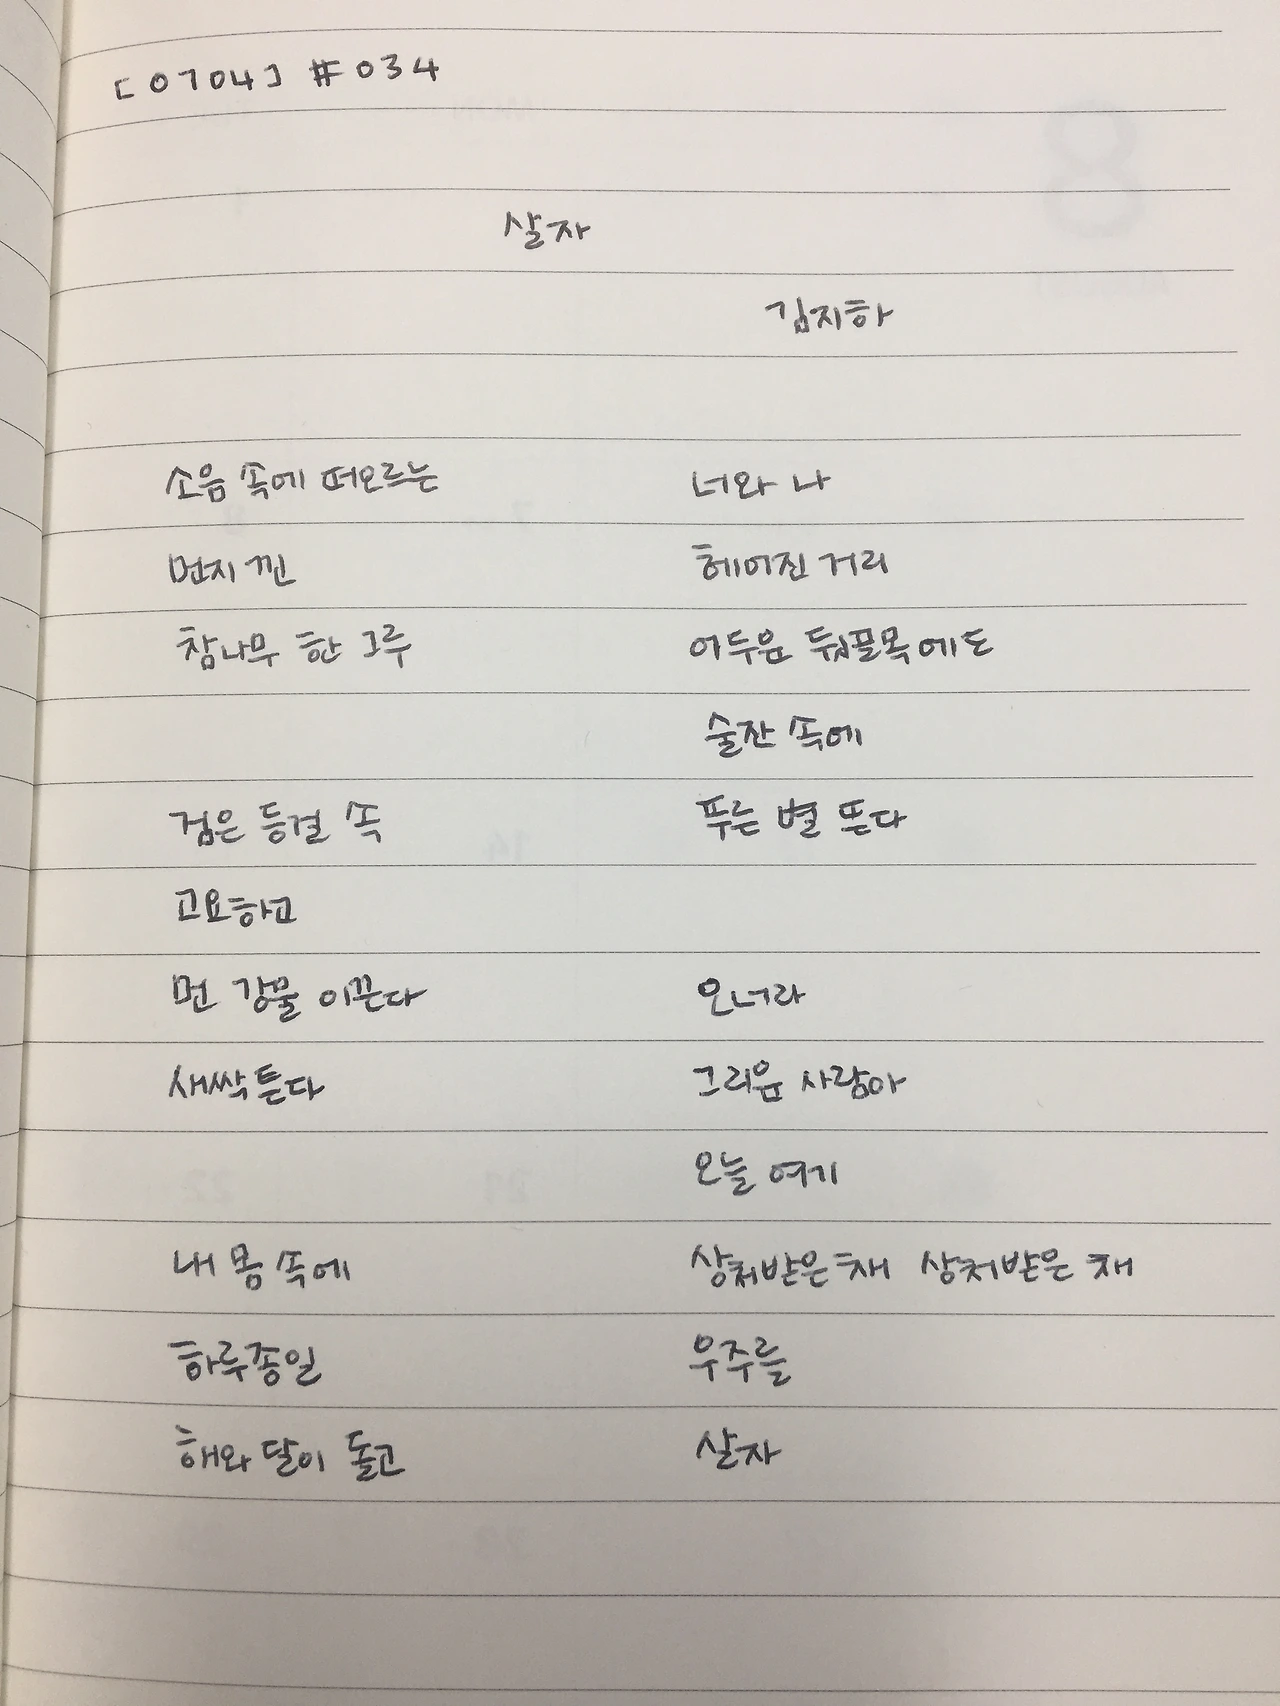 [0704] #034
살자
김지하
소음 속에 떠오르는
먼지 낀
참나무 한 그루
검은 등걸 속
고요하고
먼 강물 이끈다
새싹 튼다
내 몸 속에
하루종일
해와 달이 돌고
너와 나
헤어진 거리
어두운 뒷골목에도
술잔 속에
푸른 별 뜬다
오너라
그리운 사람아
오늘 여기
상처받은 채 상처받은 채
우주를
살자